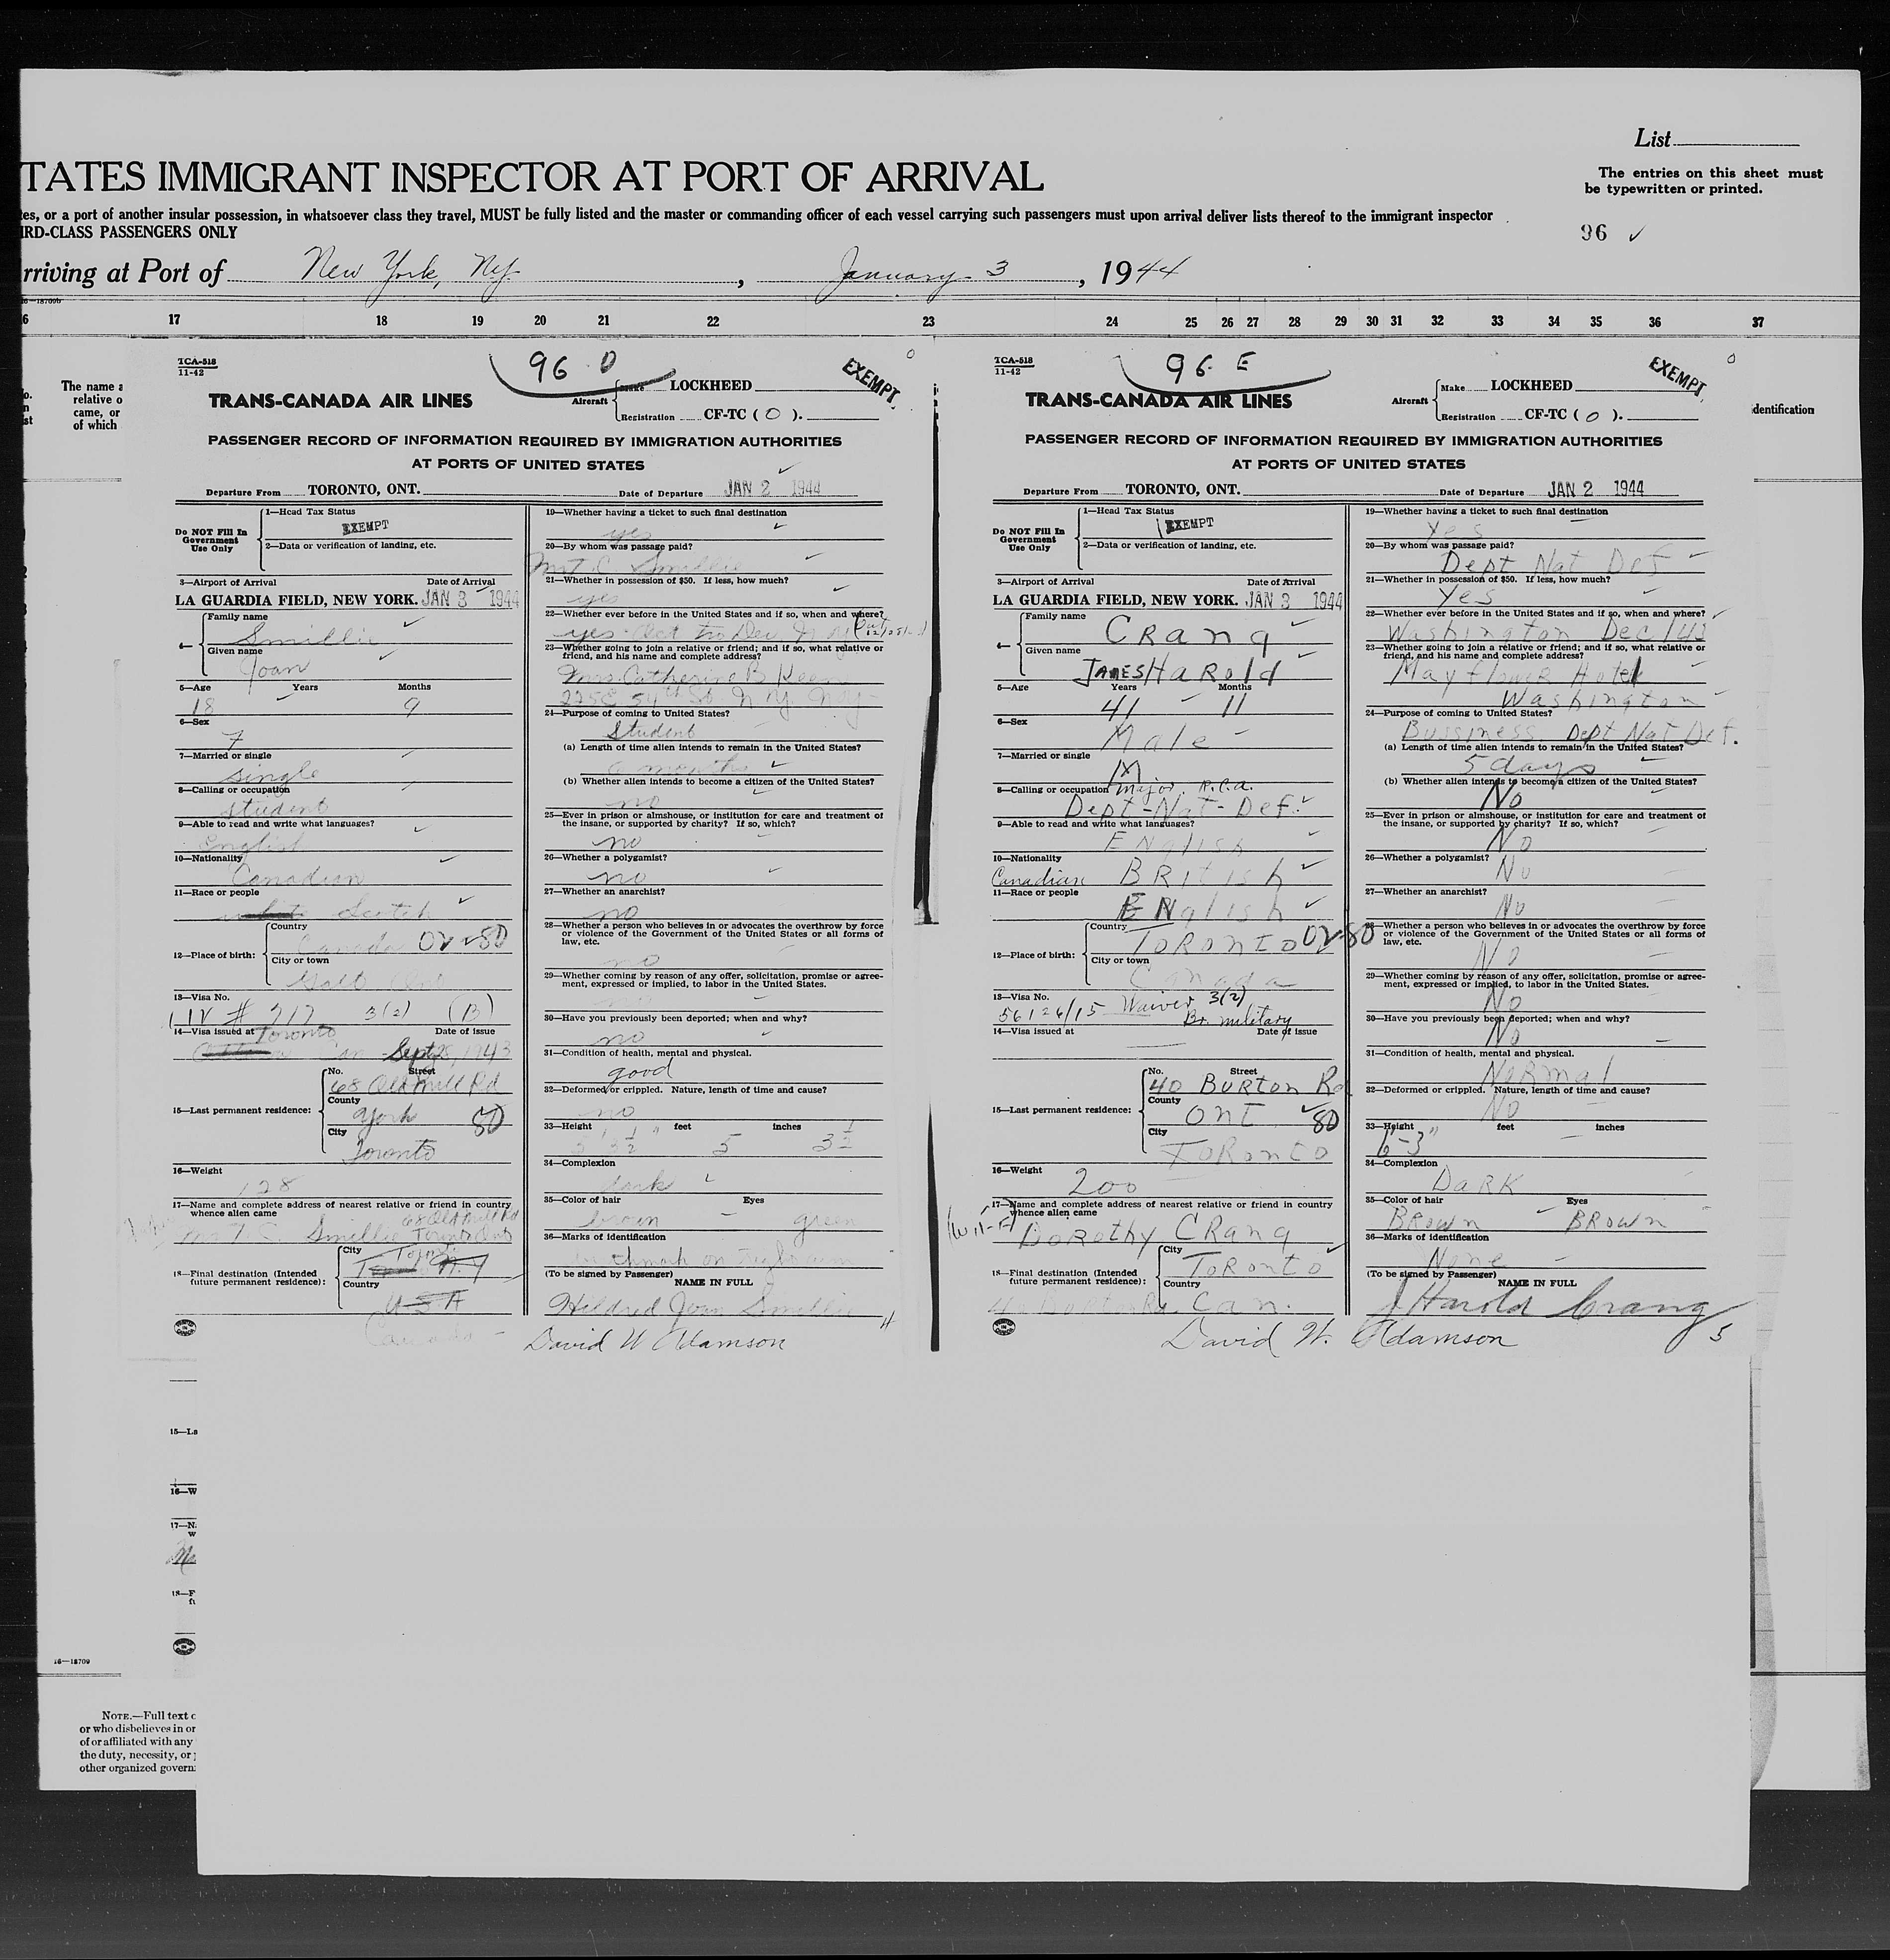 List
TATES IMMIGRANT INSPECTOR AT PORT OF ARRIVAL
The entries on this sheet must
be typewritten or printed.
tes, or a port of another insular possession, in whatsoever class they travel, MUST be fully listed and the master or commanding officer of each vessel carrying such passengers must upon arrival deliver lists thereof to the immigrant inspector
IRD-CLASS PASSENGERS ONLY
96 ✓
rriving at Port of New York, N.Y. , January 3 , 1944
16—18709b
6 17 18 19 20 21 22 23 24 25 26 27 28 29 30 31 32 33 34 35 36 37
The name a
relative o
came, or
of which
identification
TCA-518
11-42
96 D
EXEMPT
TRANS-CANADA AIR LINES
Aircraft Make LOCKHEED
Registration CF-TC ( O ).
PASSENGER RECORD OF INFORMATION REQUIRED BY IMMIGRATION AUTHORITIES
AT PORTS OF UNITED STATES
Departure From TORONTO, ONT. Date of Departure JAN 2 1944
Do NOT Fill In
Government
Use Only
1—Head Tax Status
EXEMPT
2—Data or verification of landing, etc.
3—Airport of Arrival Date of Arrival
LA GUARDIA FIELD, NEW YORK. JAN 3 1944
4— Family name
Smillie
Given name
Joan
5—Age Years Months
18 9
6—Sex
7
7—Married or single
single
8—Calling or occupation
student
9—Able to read and write what languages?
English
10—Nationality
Canadian
11—Race or people
Scotch
12—Place of birth: Country
Canada 02-80
City or town
Galt Ont
13—Visa No.
# 717 3(2) (B)
14—Visa issued at Toronto Date of issue
Can Sept 1943
15—Last permanent residence: No. Street
68 Old Mill Rd
County
York 80
City
Toronto
16—Weight
128
17—Name and complete address of nearest relative or friend in country
whence alien came
68 Old Mill Rd
Smillie Toronto Ont
18—Final destination (Intended
future permanent residence): City
Country
U S A
Canada
19—Whether having a ticket to such final destination
yes
20—By whom was passage paid?
C. Smillie
21—Whether in possession of $50. If less, how much?
yes
22—Whether ever before in the United States and if so, when and where?
yes Oct to Dec N Y
23—Whether going to join a relative or friend; and if so, what relative or
friend, and his name and complete address?
Mrs. Catherine B Keen
225 E 54th St N.Y. N.Y.
24—Purpose of coming to United States?
Student
(a) Length of time alien intends to remain in the United States?
6 months
(b) Whether alien intends to become a citizen of the United States?
no
25—Ever in prison or almshouse, or institution for care and treatment of
the insane, or supported by charity? If so, which?
no
26—Whether a polygamist?
no
27—Whether an anarchist?
no
28—Whether a person who believes in or advocates the overthrow by force
or violence of the Government of the United States or all forms of
law, etc.
no
29—Whether coming by reason of any offer, solicitation, promise or agree-
ment, expressed or implied, to labor in the United States.
30—Have you previously been deported; when and why?
no
31—Condition of health, mental and physical.
good
32—Deformed or crippled. Nature, length of time and cause?
no
33—Height feet inches
5 3½
34—Complexion
dark
35—Color of hair Eyes
brown green
36—Marks of identification
(To be signed by Passenger) NAME IN FULL
Mildred Joan Smillie
4
David W Adamson
TCA-518
11-42
96 E
EXEMPT
TRANS-CANADA AIR LINES
Aircraft Make LOCKHEED
Registration CF-TC ( O ).
PASSENGER RECORD OF INFORMATION REQUIRED BY IMMIGRATION AUTHORITIES
AT PORTS OF UNITED STATES
Departure From TORONTO, ONT. Date of Departure JAN 2 1944
Do NOT Fill In
Government
Use Only
1—Head Tax Status
EXEMPT
2—Data or verification of landing, etc.
3—Airport of Arrival Date of Arrival
LA GUARDIA FIELD, NEW YORK. JAN 3 1944
4— Family name
CRang
Given name
JAMES HaRold
5—Age Years Months
41 11
6—Sex
Male
7—Married or single
M
8—Calling or occupation Major R.C.A.
Dept-Nat-Def.
9—Able to read and write what languages?
English
10—Nationality
Canadian BRitish
11—Race or people
ENglish
12—Place of birth: Country
ToRonto 02-80
City or town
Canada
13—Visa No.
56126/15 Waiver 3(2)
Br. Military
14—Visa issued at Date of issue
15—Last permanent residence: No. Street
40 BURton Rd
County
ONT 80
City
ToRonto
16—Weight
200
17—Name and complete address of nearest relative or friend in country
whence alien came
(Wife) DoRothy CRang
18—Final destination (Intended
future permanent residence): City
ToRonto
Country
40 Burton Rd. Can.
19—Whether having a ticket to such final destination
Yes
20—By whom was passage paid?
Dept Nat Def
21—Whether in possession of $50. If less, how much?
Yes
22—Whether ever before in the United States and if so, when and where?
Washington Dec/43
23—Whether going to join a relative or friend; and if so, what relative or
friend, and his name and complete address?
Mayflower Hotel
Washington
24—Purpose of coming to United States?
Bussiness Dept Nat Def.
(a) Length of time alien intends to remain in the United States?
5 days
(b) Whether alien intends to become a citizen of the United States?
No
25—Ever in prison or almshouse, or institution for care and treatment of
the insane, or supported by charity? If so, which?
No
26—Whether a polygamist?
No
27—Whether an anarchist?
No
28—Whether a person who believes in or advocates the overthrow by force
or violence of the Government of the United States or all forms of
law, etc.
No
29—Whether coming by reason of any offer, solicitation, promise or agree-
ment, expressed or implied, to labor in the United States.
No
30—Have you previously been deported; when and why?
No
31—Condition of health, mental and physical.
NoRmal
32—Deformed or crippled. Nature, length of time and cause?
No
33—Height feet inches
6-3"
34—Complexion
DaRK
35—Color of hair Eyes
BRown BRown
36—Marks of identification
None
(To be signed by Passenger) NAME IN FULL
J Harold Crang
5
David W. Adamson
15—La
16—W
17—N
w
18—F
fu
16—18709
NOTE.—Full text o
or who disbelieves in or
of or affiliated with any
the duty, necessity, or
other organized govern